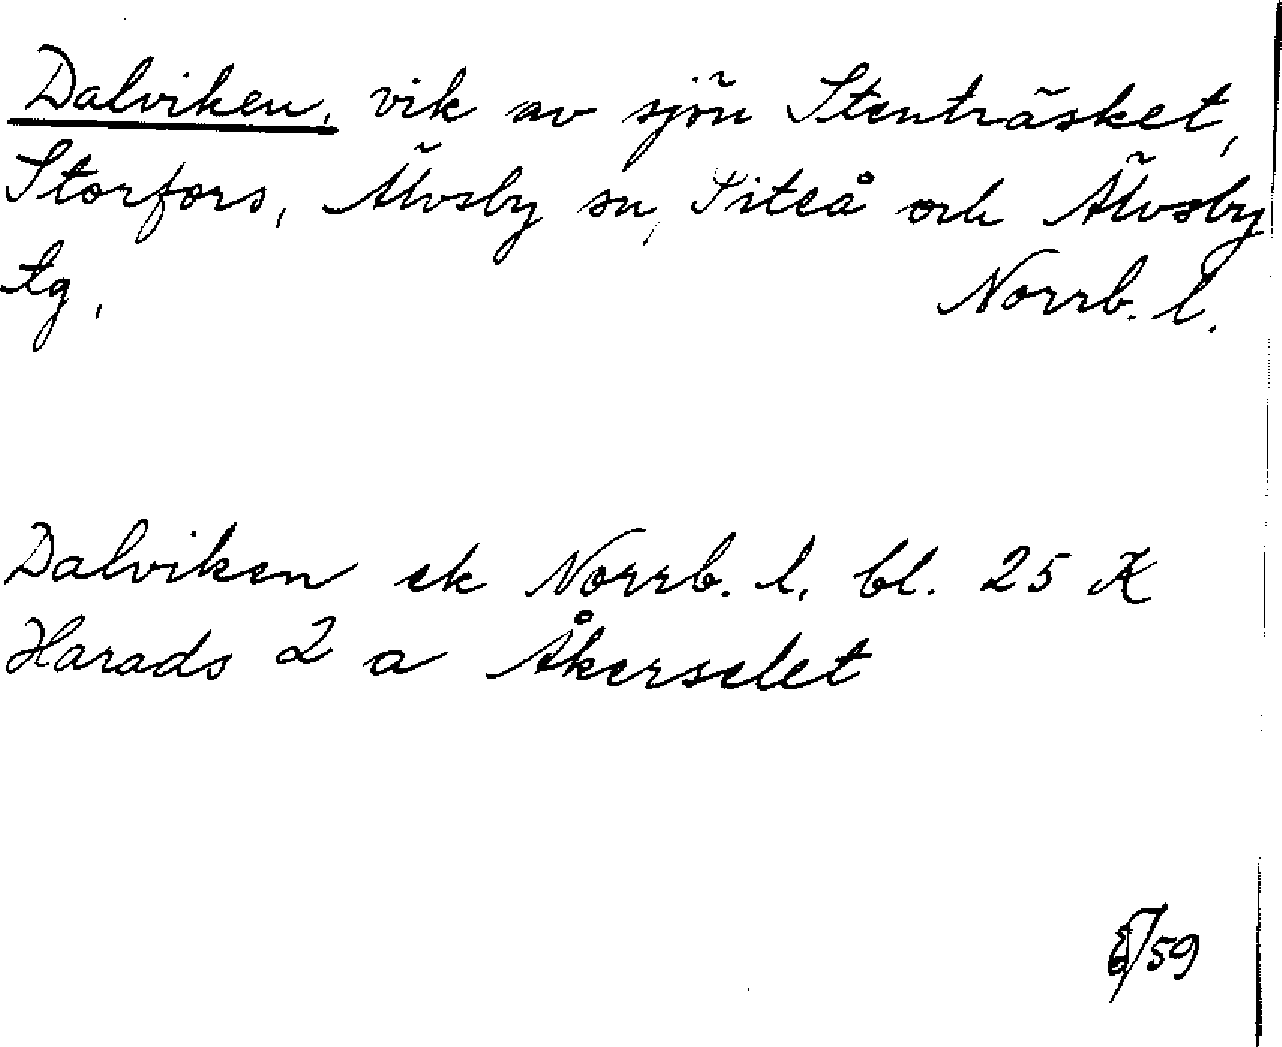 Dalviken, vik av sjön Stenträsket,
Storfors, Älvsby sn, Piteå och Älvsby
tg,
Norrb. l.
Dalviken ek Norrb. l. bl. 25 K
Harads 2 a Åkerselet
/59